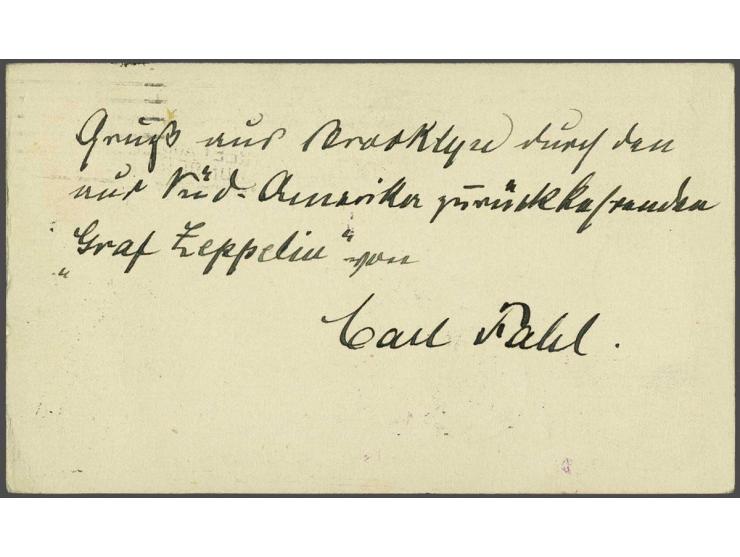 Gruß aus Brooklyn durch den
aus Süd-Amerika zurückkehrenden
„Graf Zeppelin“ von
Carl Fahl.